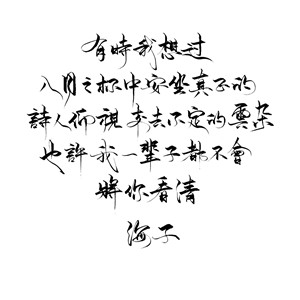 有時我想过
八月之杯中安坐真正的
詩人仰視来去不定的雲朵
也許我一輩子都不會
將你看清
海子